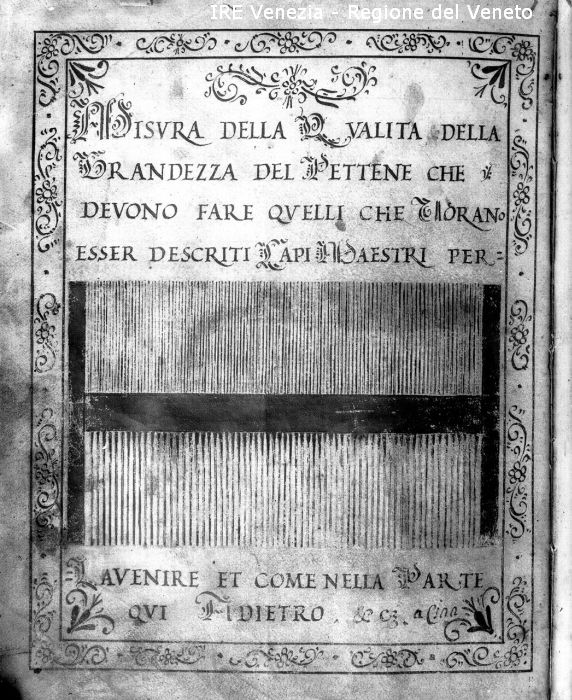 IRE Venezia - Regione del Veneto
MISVRA DELLA QVALITA DELLA
GRANDEZZA DEL PETTENE CHE
DEVONO FARE QVELLI CHE VORANo
ESSER DESCRITI CAPI MAESTRI PER=
LAVENIRE ET COME NELLA PARTE
QVI A DIETRO